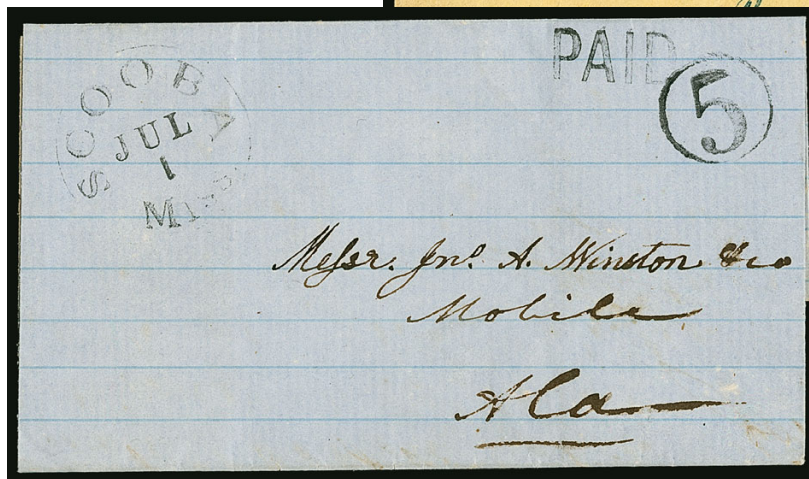 SCOOBA
JUL
1
Miss
PAID
5
Messr. Jno. A. Winston & co
Mobile
Ala